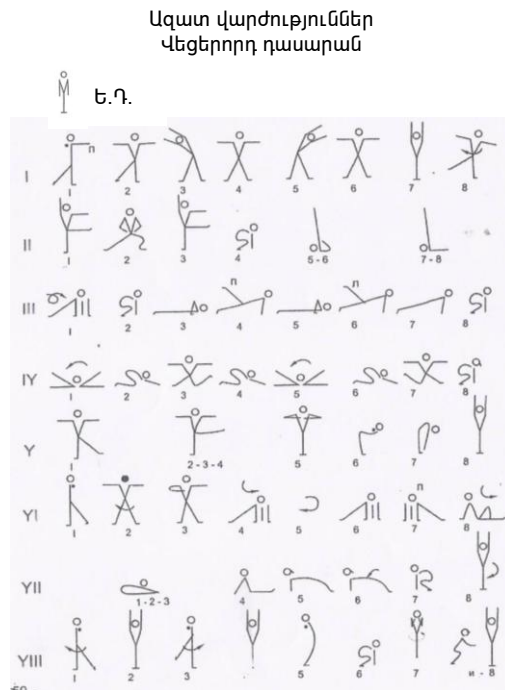 Ազատ վարժություններ
Վեցերորդ դասարան
Ե.Դ.
п
I
1 2 3 4 5 6 7 8
II
1 2 3 4 5 - 6 7 - 8
п п
III
1 2 3 4 5 6 7 8
IY
1 2 3 4 5 6 7 8
Y
1 2 - 3 - 4 5 6 7 8
п
YI
1 2 3 4 5 6 7 8
YII
1 - 2 - 3 4 5 6 7 8
YIII
1 2 3 4 5 6 7 и - 8